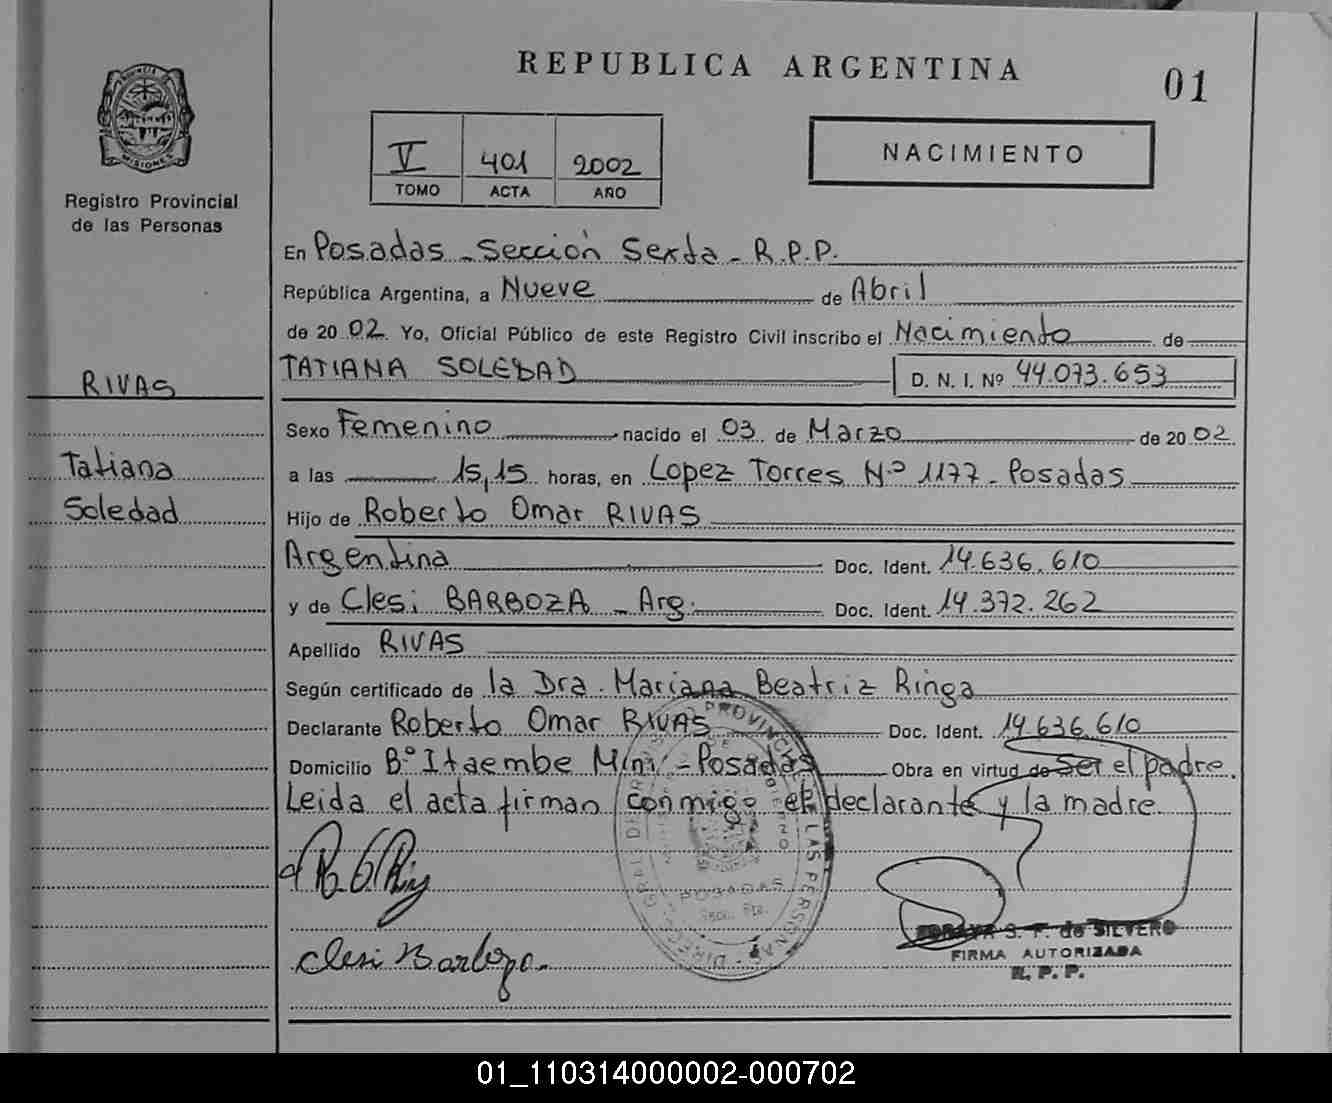 REPUBLICA ARGENTINA
01
PROVINCIA DE
MISIONES
Registro Provincial
de las Personas
V 401 2002
TOMO ACTA AÑO
NACIMIENTO
En Posadas - Sección Sexta - R.P.P.
República Argentina, a Nueve de Abril
de 20 02 Yo, Oficial Público de este Registro Civil inscribo el Nacimiento de
TATIANA SOLEDAD D. N. I. Nº 44.073.653
RIVAS
Sexo Femenino nacido el 03 de Marzo de 20 02
Tatiana
a las 15,15 horas, en Lopez Torres Nº 1177 - Posadas
Soledad
Hijo de Roberto Omar RIVAS
Argentina Doc. Ident. 14.636.610
y de Clesi BARBOZA - Arg. Doc. Ident. 14.372.262
Apellido RIVAS
Según certificado de la Dra. Mariana Beatriz Ringa
Declarante Roberto Omar RIVAS Doc. Ident. 14.636.610
Domicilio Bº Itaembe Mini - Posadas Obra en virtud de Ser el padre.
Leida el acta firman conmigo el declarante y la madre.
POSADAS
Clesi Barboza.
S. F. de SILVERO
FIRMA AUTORIZADA
R. P. P.
01_110314000002-000702